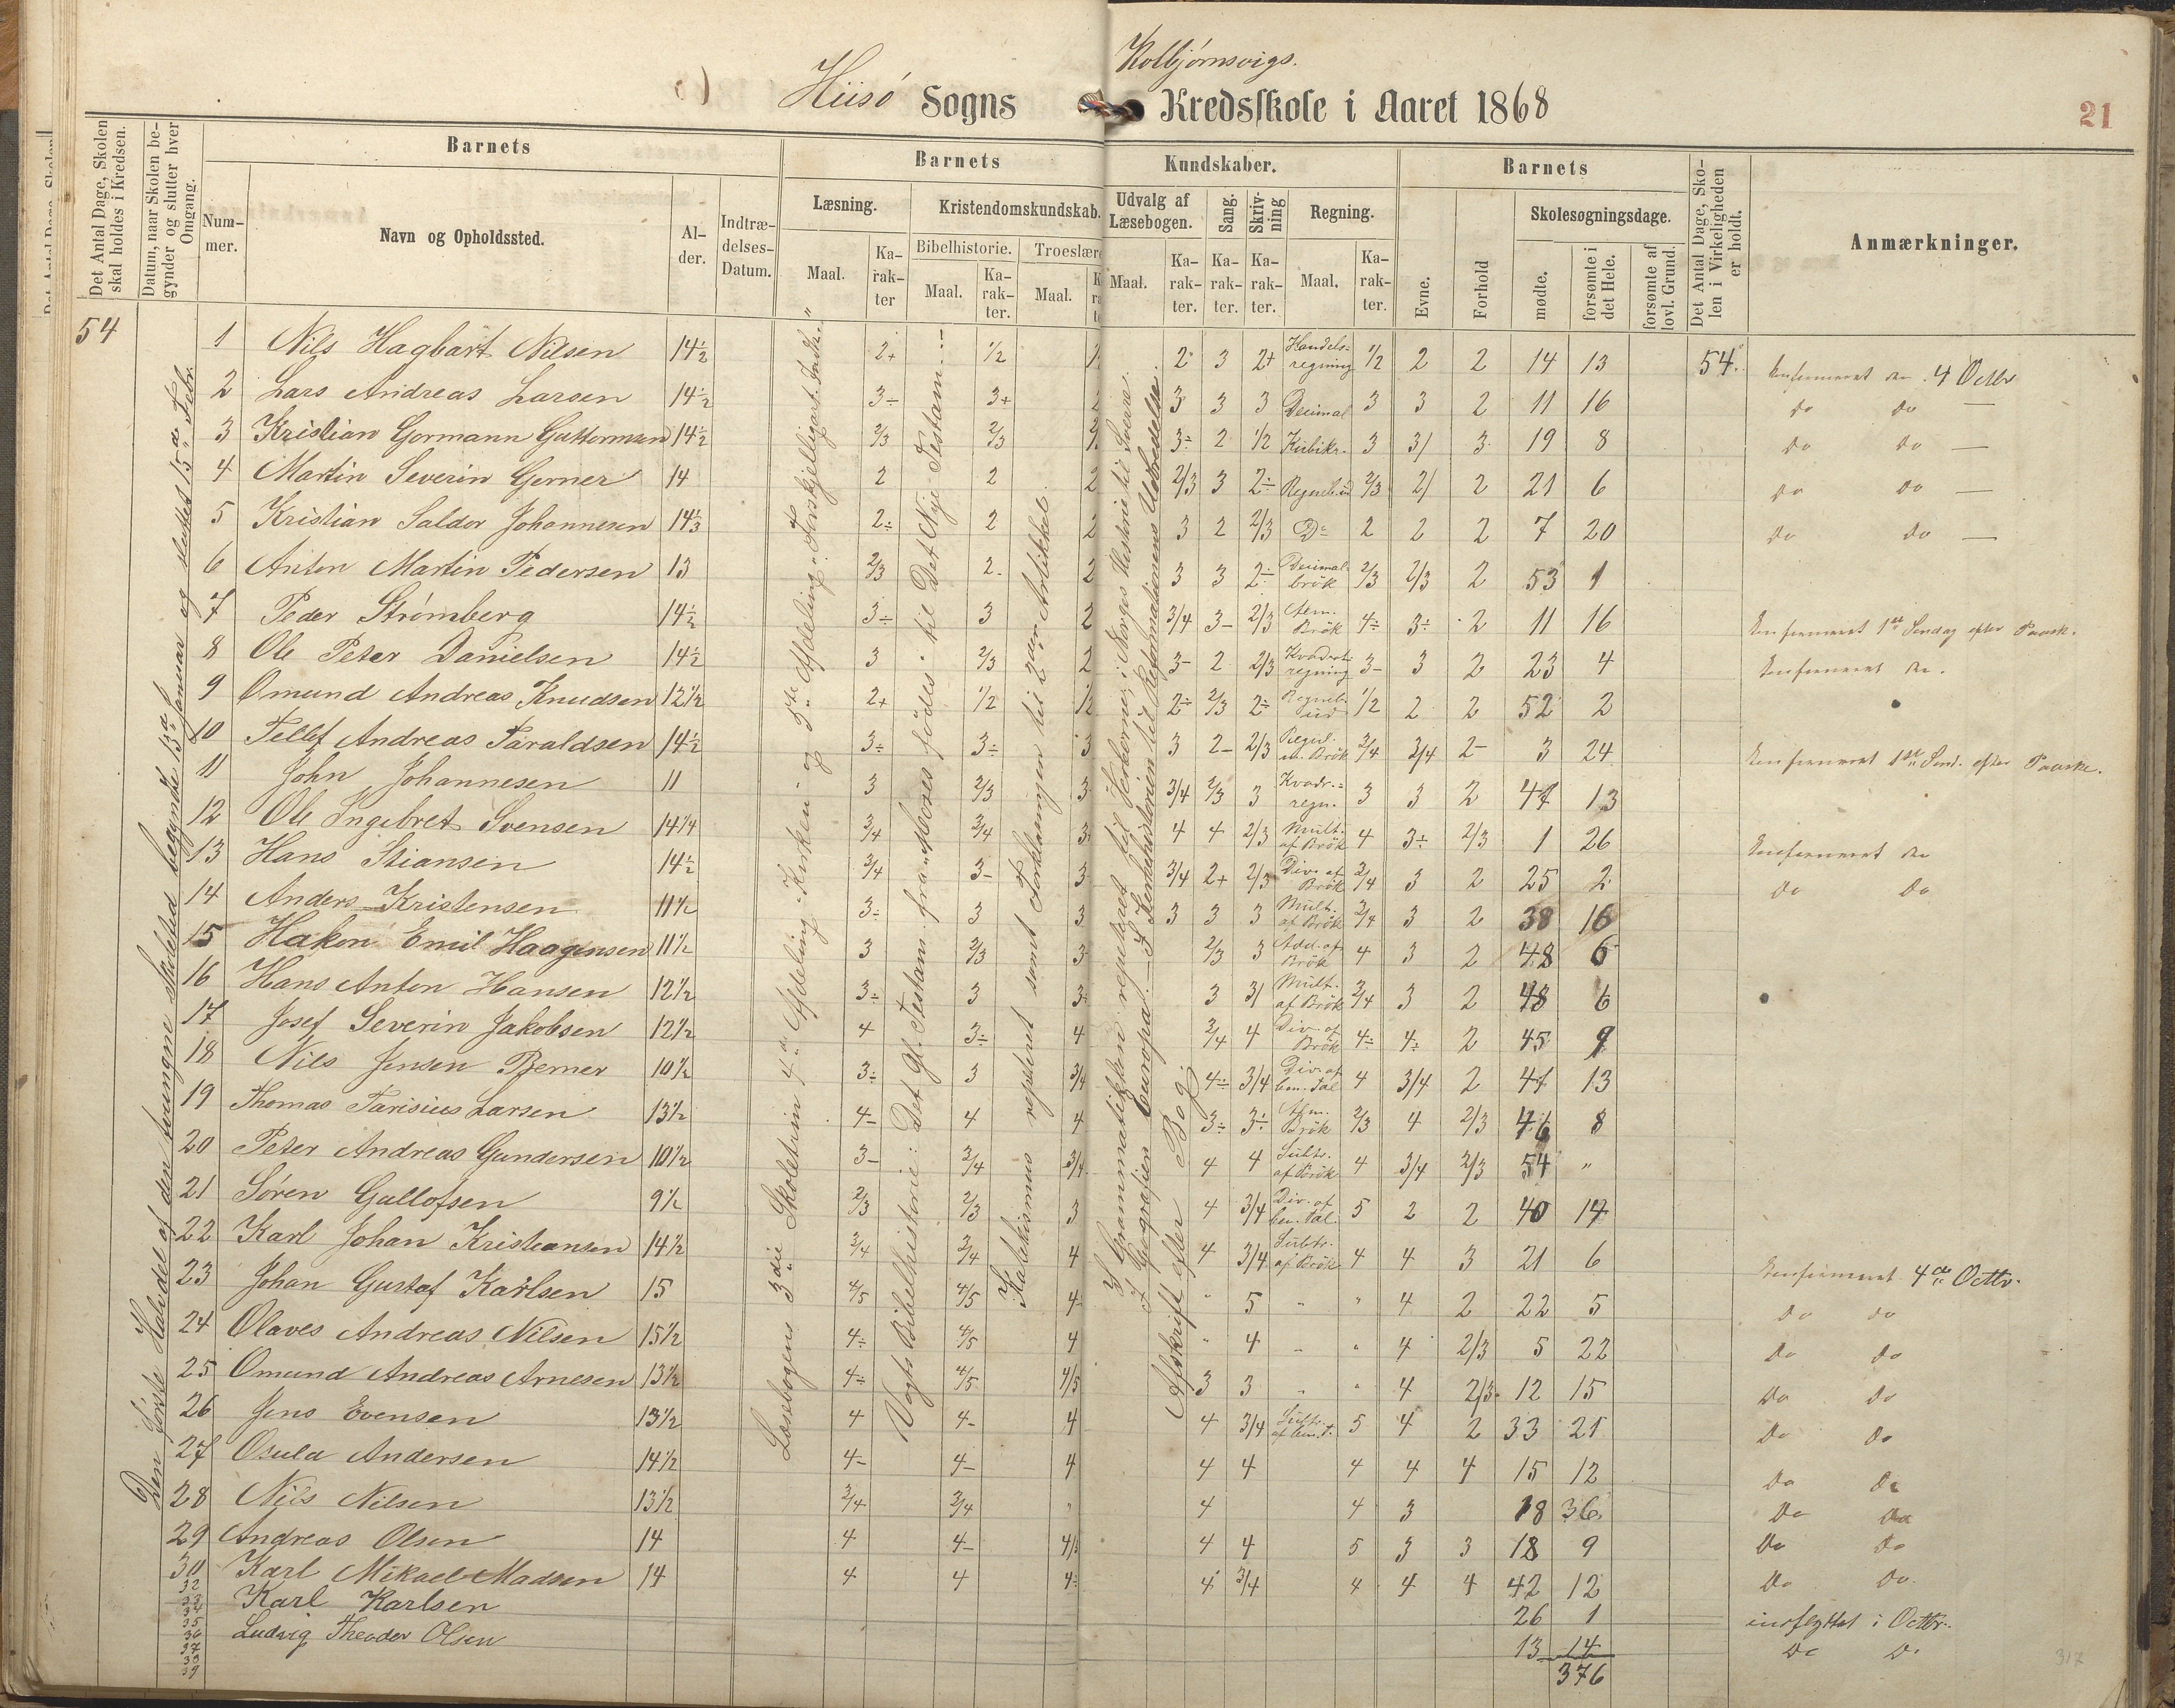 Kolbjørnsvigs.
Hiisö Sogns Kredsskole i Aaret 1868
21
Det Antal Dage, Skolen skal holdes i Kredsen.
Datum, naar Skolen begynder og slutter hver Omgang.
Barnets
Num-
mer.
Navn og Opholdssted.
Al-
der.
Indtræ-
delses-
Datum.
Barnets Kundskaber.
Læsning.
Maal.
Ka-
rak-
ter
Kristendomskundskab.
Bibelhistorie.
Maal.
Ka-
rak-
ter.
Troeslære
Maal.
Udvalg af Læsebogen.
Maal.
Ka-
rak-
ter.
Sang.
Ka-
rak-
ter.
Skriv-
ning
Ka-
rak-
ter.
Regning.
Maal.
Ka-
rak-
ter.
Barnets
Evne.
Forhold
Skolesøgningsdage.
mødte.
forsømte i det Hele.
forsømte af lovl. Grund.
Det Antal Dage, Skolen i Virkeligheden er holdt.
Anmærkninger.
54
Den første Halvdel af den tvungne Skoletid begyndte 13de Januar og sluttet 15de Febr.
Læsebogens 3die Skoletrin 4de Afdeling "Kirken" og 5te Afdeling "Forskjelligart. Indh."
Vogts Bibelhistorie: Det Gl. Testam. fra "Moses födes" til Det Nye Testam.
Katekismus repeteret samt Forklaringen til 2den Artikkel
I Grammatikken repeteret til
I Geografien Europa. I Kirkehistorien til Reformationens Udbredelse
Afskrift efter Bog.
1 Nils Hagbart Nilsen 14½ 2+ ½ 2 3 2+ Handels-regning ½ 2 2 14 13 54. Konfirmeret den 4 Octbr
2 Lars Andreas Larsen 14½ 3÷ 3+ 3 3 3 Decimal 3 3 2 11 16 do do —
3 Kristian Gormann Guttormsen 14½ 2/3 2/3 3÷ 2 ½ Kubikr. 3 3/ 3 19 8 do do —
4 Martin Severin Gerner 14 2 2 2 2/3 3 2÷ 2/3 2/ 2 21 6 do do —
5 Kristian Saldor Johannesen 14⅓ 2÷ 2 2 3 2 2/3 Do 2 2 2 7 20 do do —
6 Anton Martin Pedersen 13 2/3 2- 2 3 3 2÷ Decimal-brök 2/3 2/3 2 53 1
7 Peder Strömberg 14½ 3÷ 3 2 3/4 3- 2/3 Alm. Brök 4÷ 3÷ 2 11 16 Konfirmeret 1ste Söndag efter Paask.
8 Ole Peter Danielsen 14½ 3 2/3 2 3- 2 2/3 Kvadrat-regning 3- 3 2 23 4 Konfirmeret do.
9 Omund Andreas Knudsen 12½ 2+ ½ ½ 2÷ 2/3 2÷ ½ 2 2 52 2
10 Tellef Andreas Taraldsen 14½ 3÷ 3÷ 3 3 2- 2/3 Regul. m. Brök 3/4 3/4 2- 3 24 Konfirmeret 1ste Sönd. efter Paaske.
11 John Johannesen 11 3 2/3 3 3/4 2/3 3 Kvadr.-regn. 3 3 2 41 13
12 Ole Ingebret Svensen 14¼ 3/4 3/4 3 4 4 2/3 Mult. af Brök 4 3÷ 2/3 1 26 Konfirmeret do
13 Hans Stiansen 14½ 3/4 3- 3 3/4 2+ 2/3 Div. af Brök 3/4 3 2 25 2 do do
14 Anders Kristensen 11½ 3÷ 3 3 3 3 3 Mult. af Brök 3/4 3 2 38 16
15 Hakon Emil Haagensen 11½ 3 2/3 3 2/3 3 Add. af Brök 4 3 2 48 6
16 Hans Anton Hansen 12½ 3÷ 3 3 3 3/ Mult. af Brök 3/4 3 2 48 6
17 Josef Severin Jakobsen 12½ 4 3÷ 4 3/4 4 Div. af Brök 4÷ 4÷ 2 45 9
18 Nils Jensen Berner 10½ 3÷ 3 3/4 4÷ 3/4 Div. af ben. Tal 4 3/4 2 41 13
19 Thomas Tarisius Larsen 13½ 4- 4 4 3÷ 3÷ Alm. Brök 2/3 4 2/3 46 8
20 Peter Andreas Gundersen 10½ 3- 3/4 3/4 4 4 Subtr. af Brök 4 3/4 2/3 54 "
21 Sören Gullofsen 9½ 2/3 2/3 3 4 3/4 Div. af ben. Tal 5 2 2 40 14
22 Karl Johan Kristiansen 14½ 3/4 3/4 4 4 3/4 Subtr. af Brök 4 4 3 21 6 Konfirmeret 4de Octbr.
23 Johan Gustaf Karlsen 15 4/5 4/5 4 " 5 " " 4 2 22 5 do do
24 Olaves Andreas Nilsen 15½ 4÷ 4/5 4 " 4 " " 4 2/3 5 22 do do
25 Omund Andreas Arnesen 13½ 4÷ 4/5 4/5 3 3 " " 4 2/3 12 15 do do
26 Jens Evensen 13½ 4 4- 4 4 3/4 Subtr. af ben. T. 5 4 2 33 21 do do
27 Osuld Andersen 14½ 4- 4- 4 4 4 4 4 4 15 12 do do
28 Nils Nilsen 13½ 3/4 3/4 " 4 4 3 18 36 do do
29 Andreas Olsen 14 4 4- 4/5 4 4 5 3 3 18 9 do do
30 Karl Mikael Madsen 14 4 4 4÷ 4 3/4 4 4 4 42 12 do do
32 33 Karl Karlsen 26 1 indflyttet i Octbr.
34 35 36 Ludvig Theodor Olsen 13 14 do do
37 38 39 376
317